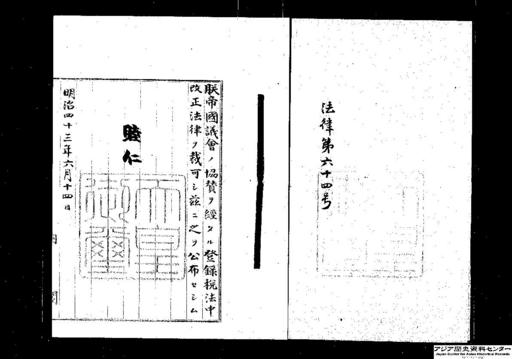 法律第六十四号
朕帝國議會ノ協賛ヲ經タル登録税法中
改正法律ヲ裁可シ茲ニ之ヲ公布セシム
睦仁
天皇御璽
明治四十三年六月十四日
アジア歴史資料センター
Japan Center for Asian Historical Records